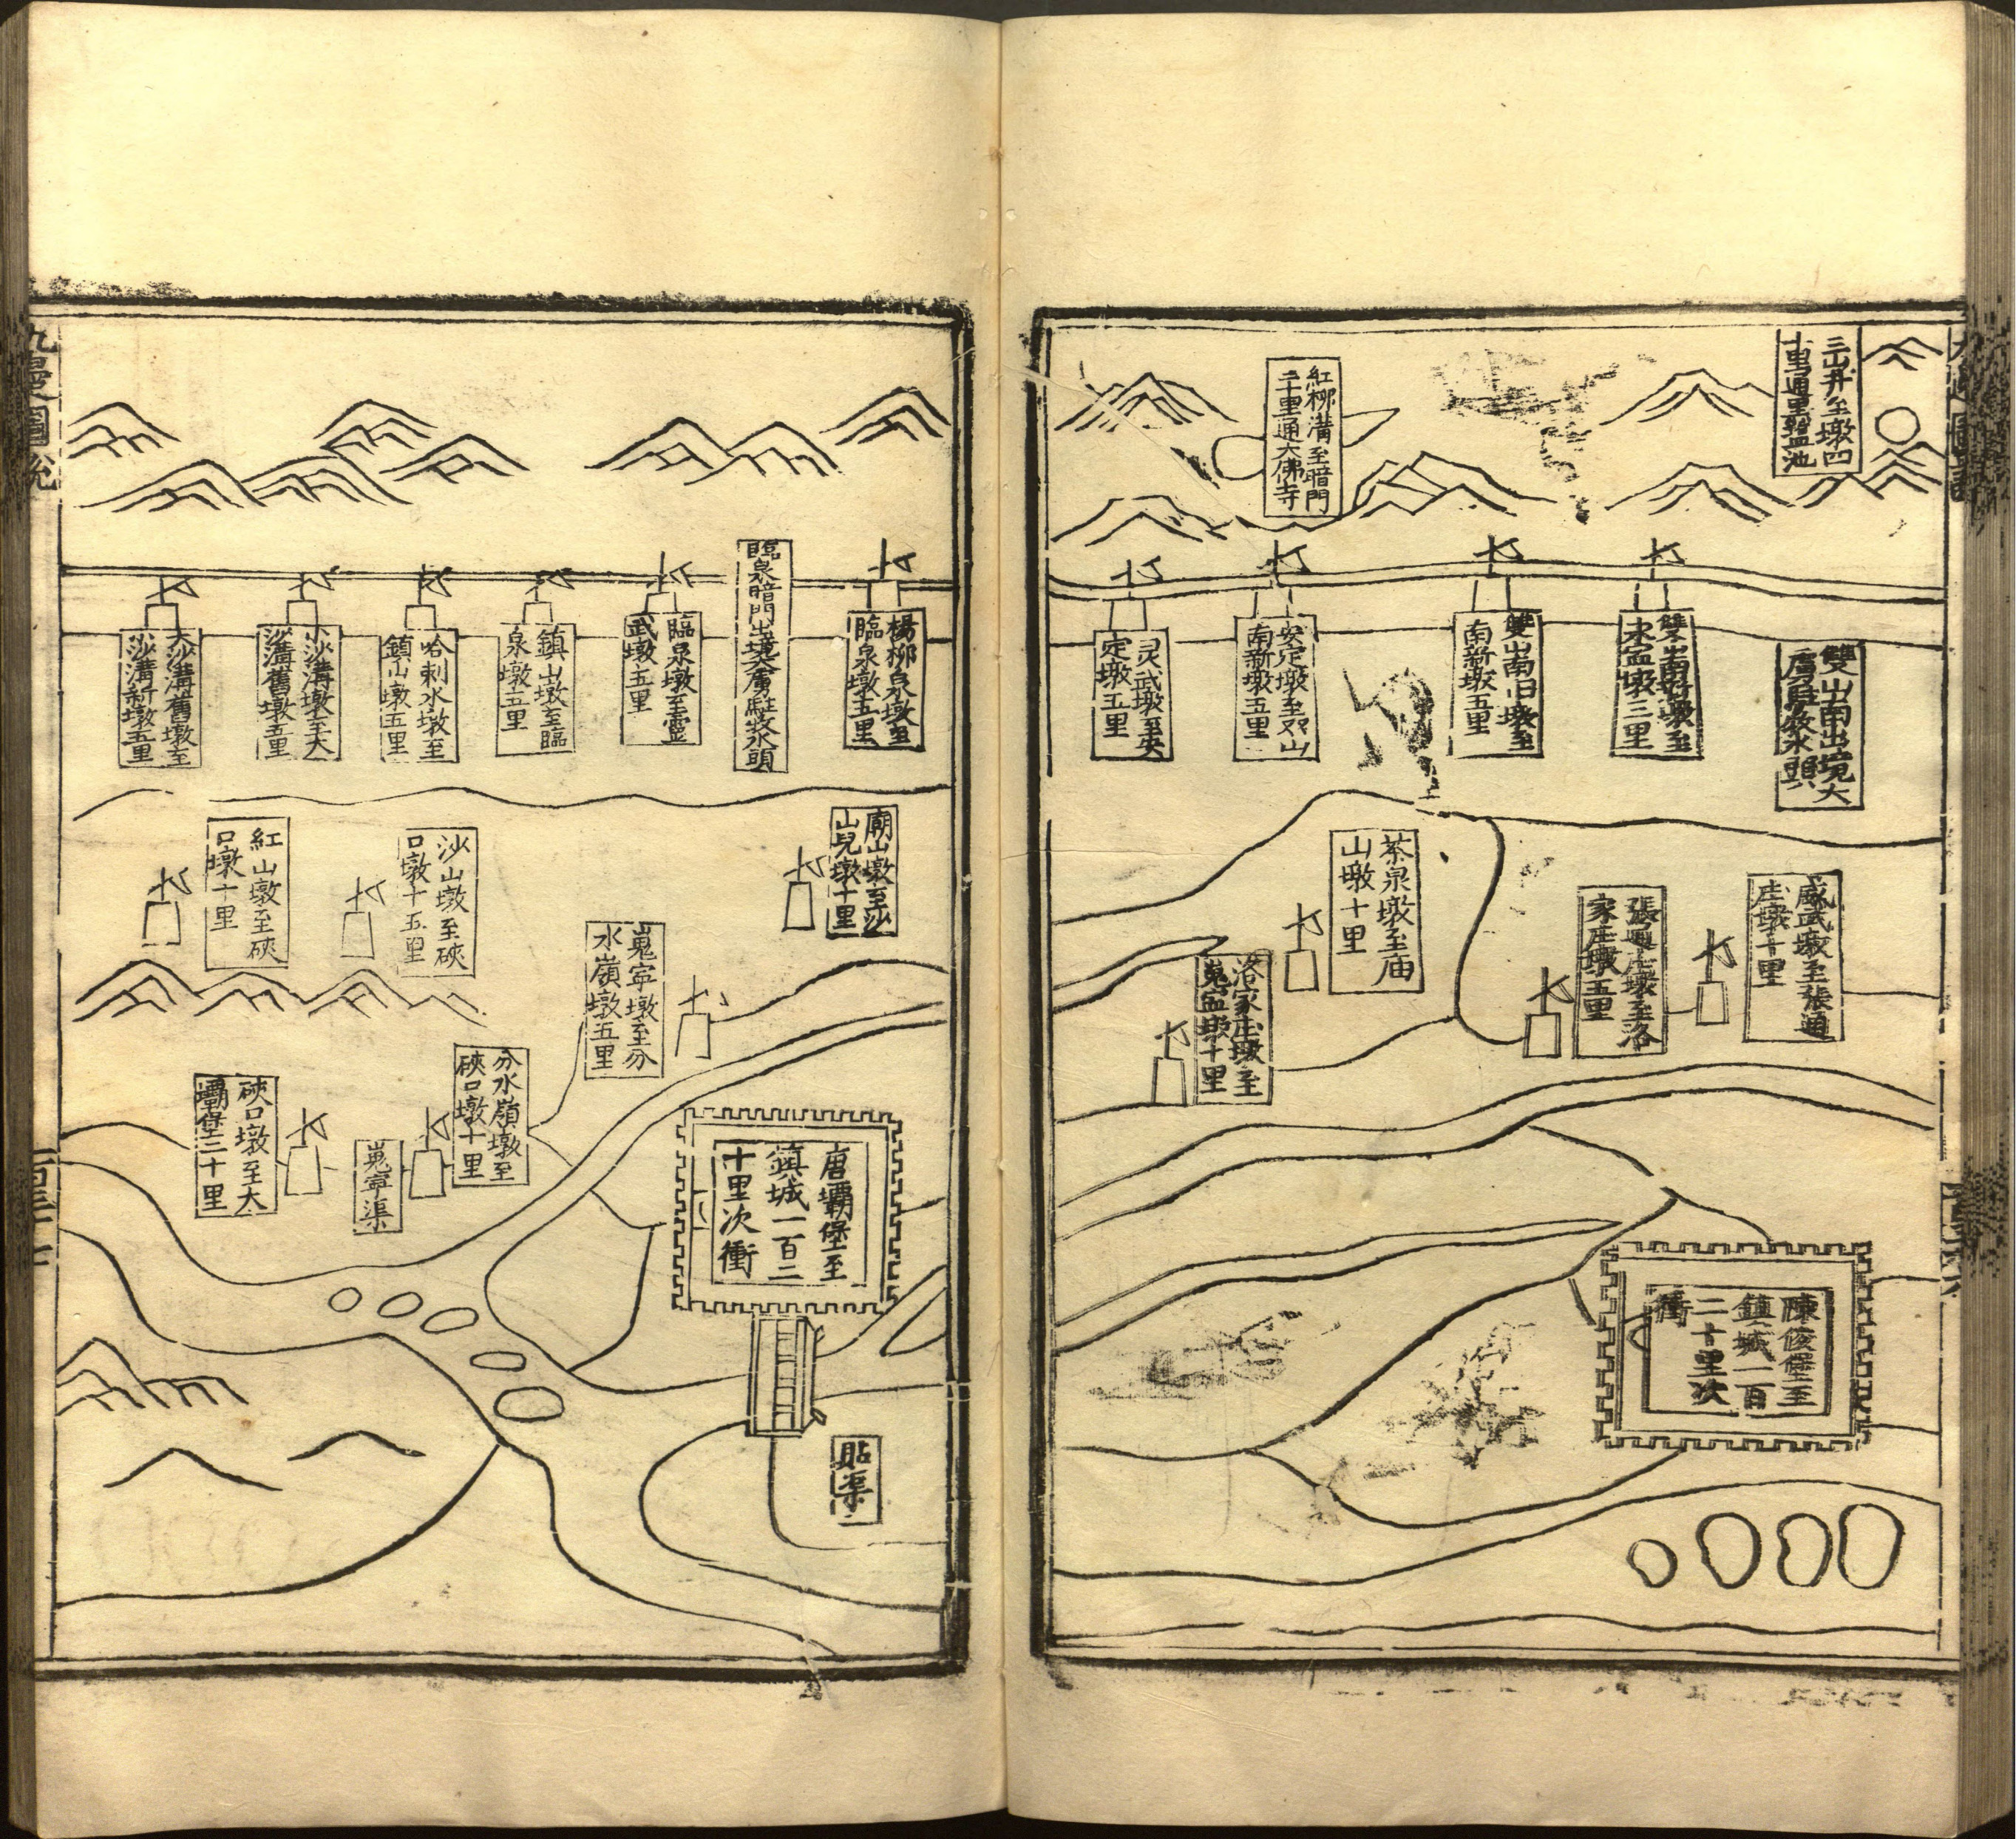 三山井至墩四
十里通里鹽池
紅柳溝至暗門
二十里通大佛寺
雙山南出境大
虜駐牧水頭
雙山南舊墩至
水盆墩三里
雙山南旧墩至
南新墩五里
安定墩至双山
南新墩五里
灵武墩至安
定墩五里
威武墩至張通
庄墩十里
張通庄墩至洛
家庄墩五里
茶泉墩至庙
山墩十里
洛家庄墩至
嵬盆墩十里
陳俊堡至
鎮城一百
二十里次
衝
楊柳泉墩至
臨泉墩五里
臨泉暗門出境大虜駐牧水頭
臨泉墩至靈
武墩五里
鎮山墩至臨
泉墩五里
哈剌水墩至
鎮山墩五里
小沙溝墩至大
沙溝舊墩五里
大沙溝舊墩至
沙溝新墩五里
廟山墩至沙
山兒墩十里
沙山墩至硤
口墩十五里
紅山墩至硤
口墩十里
嵬寧墩至分
水嶺墩五里
分水嶺墩至
硤口墩十里
嵬寧渠
硤口墩至大
壩堡三十里
唐壩堡至
鎮城一百二
十里次衝
貼渠
九邊圖說